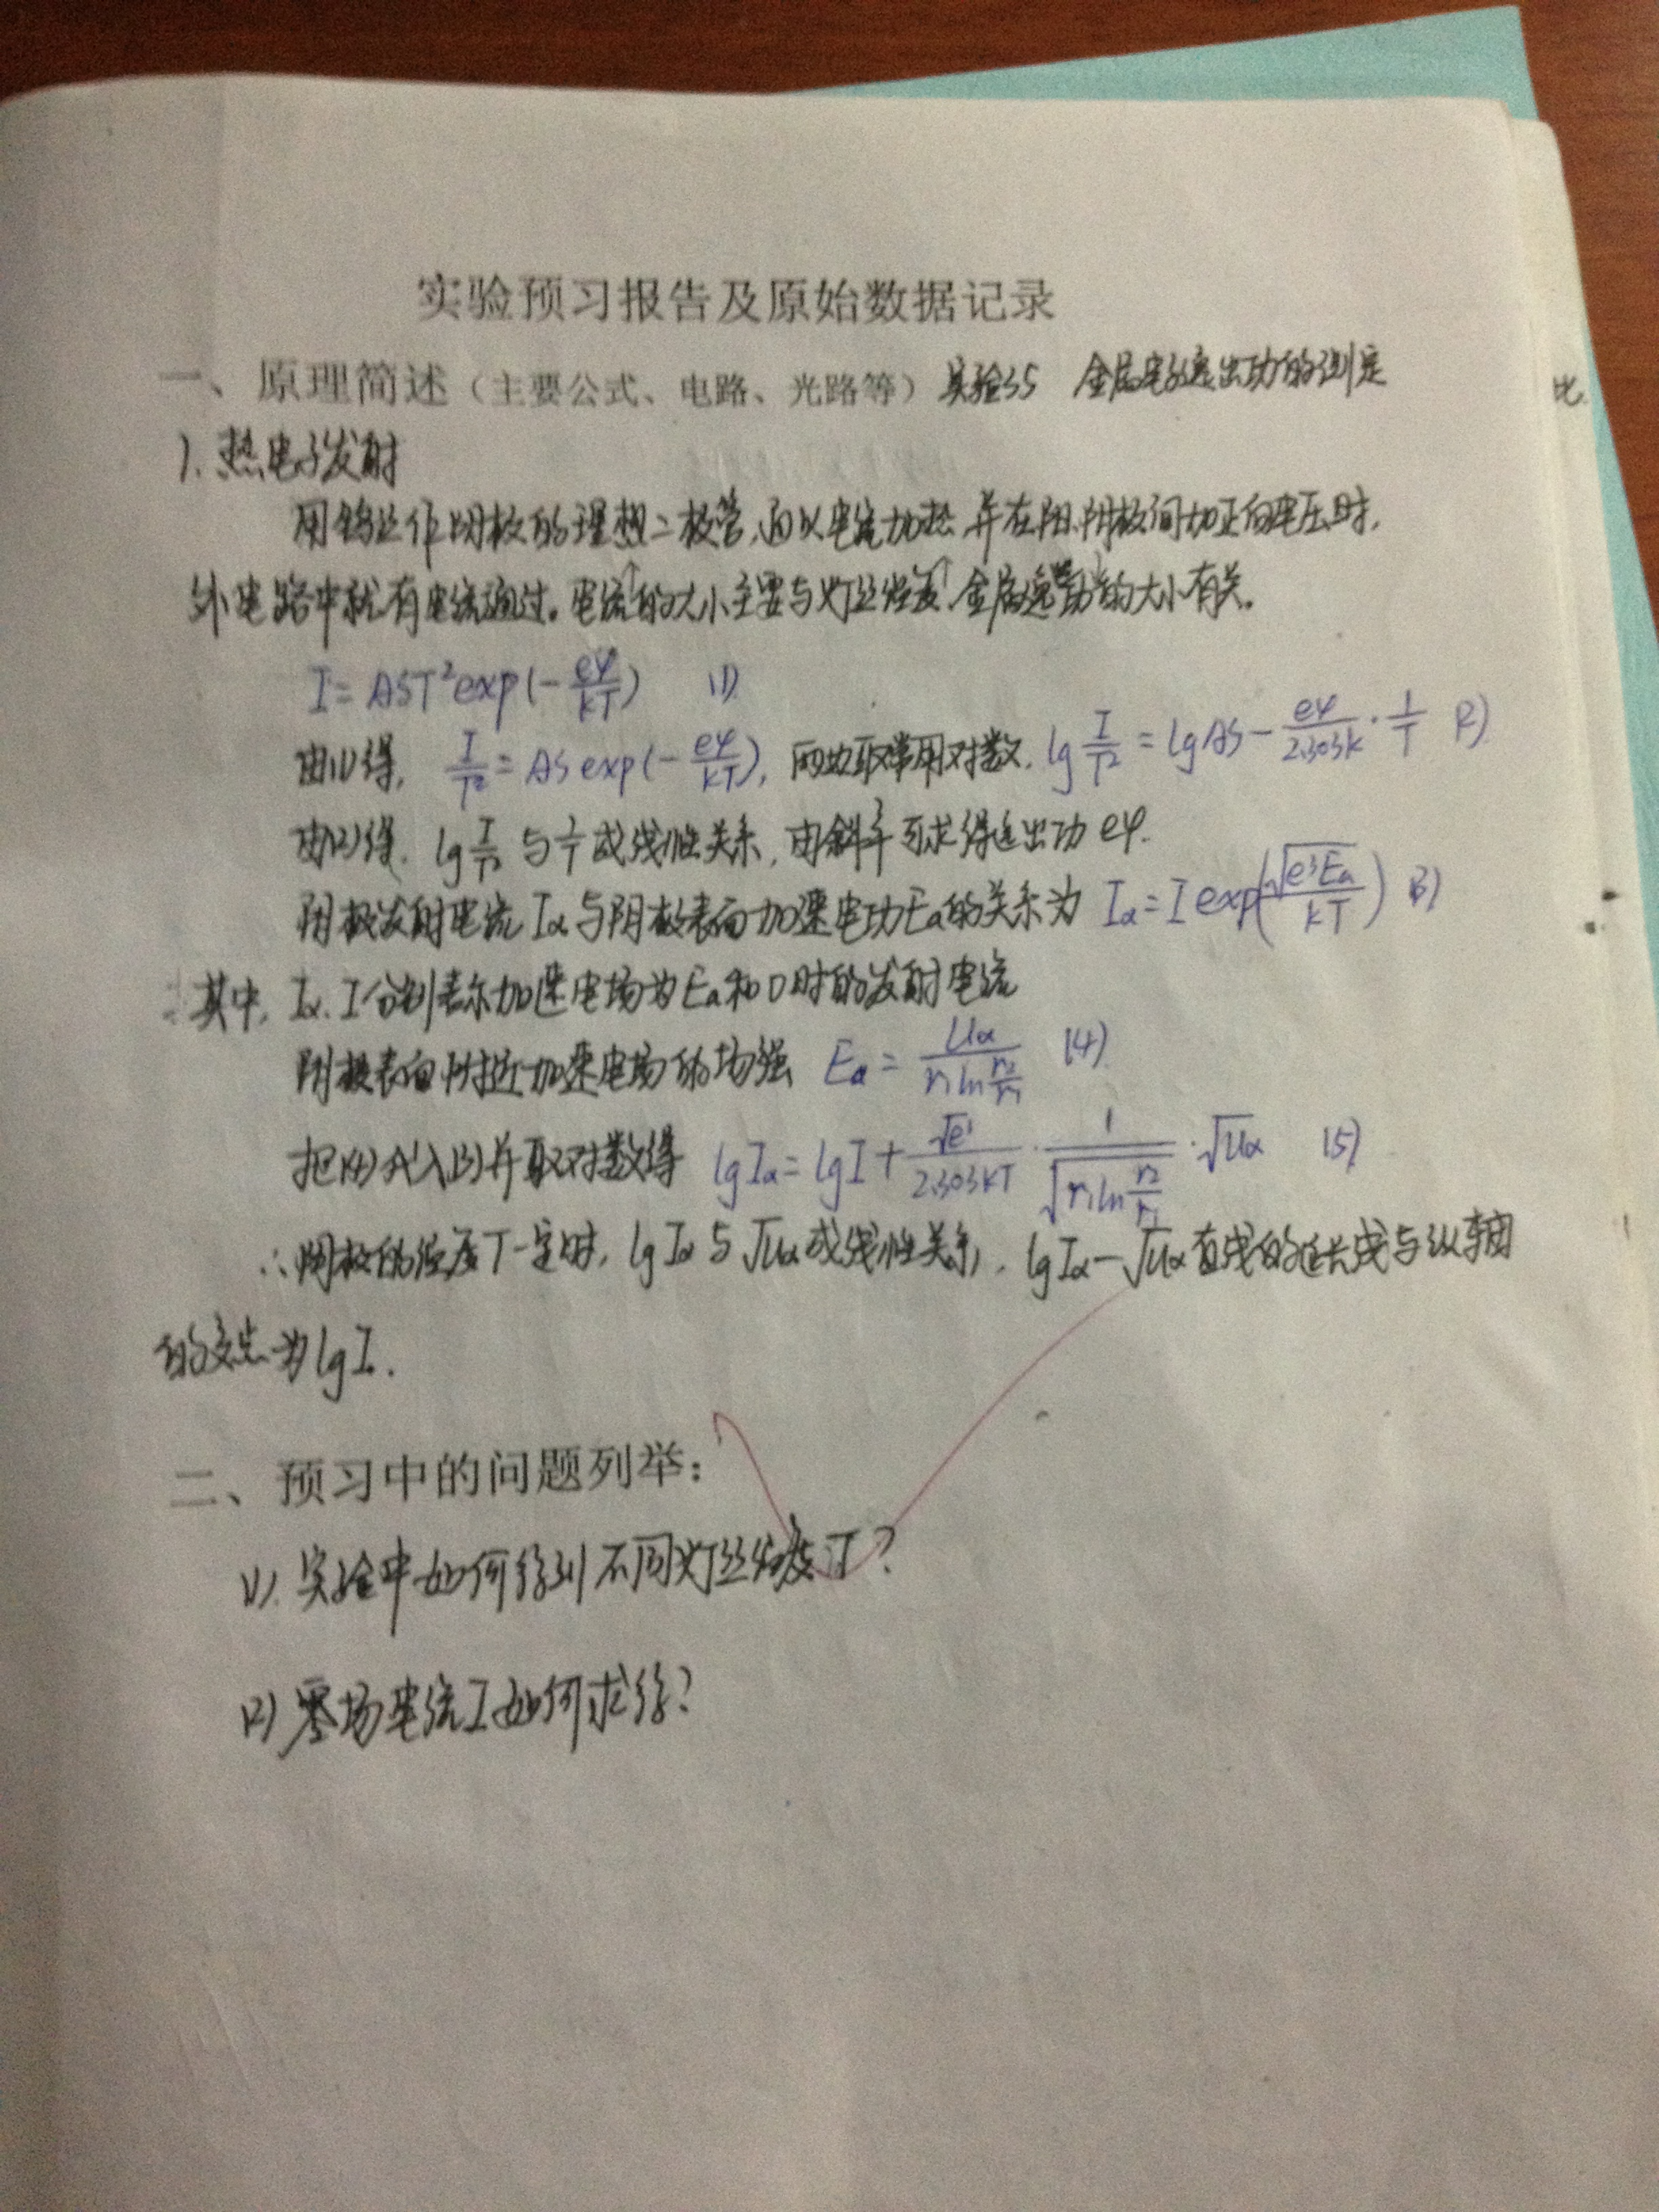 实验预习报告及原始数据记录
一、原理简述（主要公式、电路、光路等）实验35 金属电子逸出功的测定
1. 热电子发射
用钨丝作阴极的理想二极管,通以电流加热,并在阳、阴极间加正向电压时,
外电路中就有电流通过。电流的大小主要与灯丝温度、金属逸出功的大小有关。
I = AST² exp(-eφ/kT) (1)
由(1)得, I/T² = AS exp(-eφ/kT), 两边取常用对数, lg I/T² = lg AS - eφ/2.303k · 1/T (2)
由(2)得, lg I/T² 与 1/T 成线性关系, 由斜率可求得逸出功 eφ.
阴极发射电流 Iα 与阴极表面加速电场Ea的关系为 Iα = I exp(√(e³Ea)/kT) (3)
其中, Iα、I分别表示加速电场为Ea和0时的发射电流
阴极表面附近加速电场的场强 Ea = Uα/(r₁ ln r₂/r₁) (4)
把(4)代入(3)并取对数得 lgIα = lgI + √e³/2.303kT · 1/√(r₁ ln r₂/r₁) · √Uα (5)
∴阴极的温度T一定时, lgIα与√Uα成线性关系, lgIα-√Uα直线的延长线与纵轴
的交点为lgI.
二、预习中的问题列举：
(1). 实验中如何得到不同灯丝温度T?
(2) 零场电流I如何求得?
比